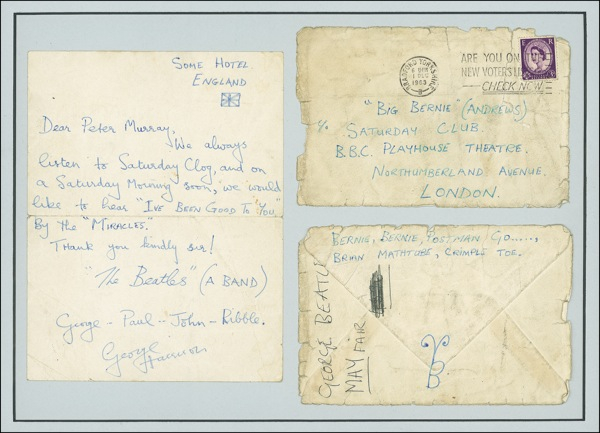 SOME HOTEL
ENGLAND
Dear Peter Murray,
We always
listen to Saturday Clog, and on
a Saturday Morning soon, we would
like to hear "I'VE BEEN GOOD TO YOU"
By the "MIRACLES."
Thank you kindly sir!
"The Beatles" (A BAND)
George - Paul - John - Ribble.
George
Harrison
BRADFORD YORKS.
1 AUG
1963
ARE YOU ON
NEW VOTERS
CHECK NOW
"BIG BERNIE" (ANDREWS)
c/o SATURDAY CLUB
B.B.C. PLAYHOUSE THEATRE.
NORTHUMBERLAND AVENUE.
LONDON.
BERNIE, BERNIE, POSTMAN GO.....,
BRIAN MATHTUBE, CRIMPLE TOE.
GEORGE BEATLE
MAYFAIR